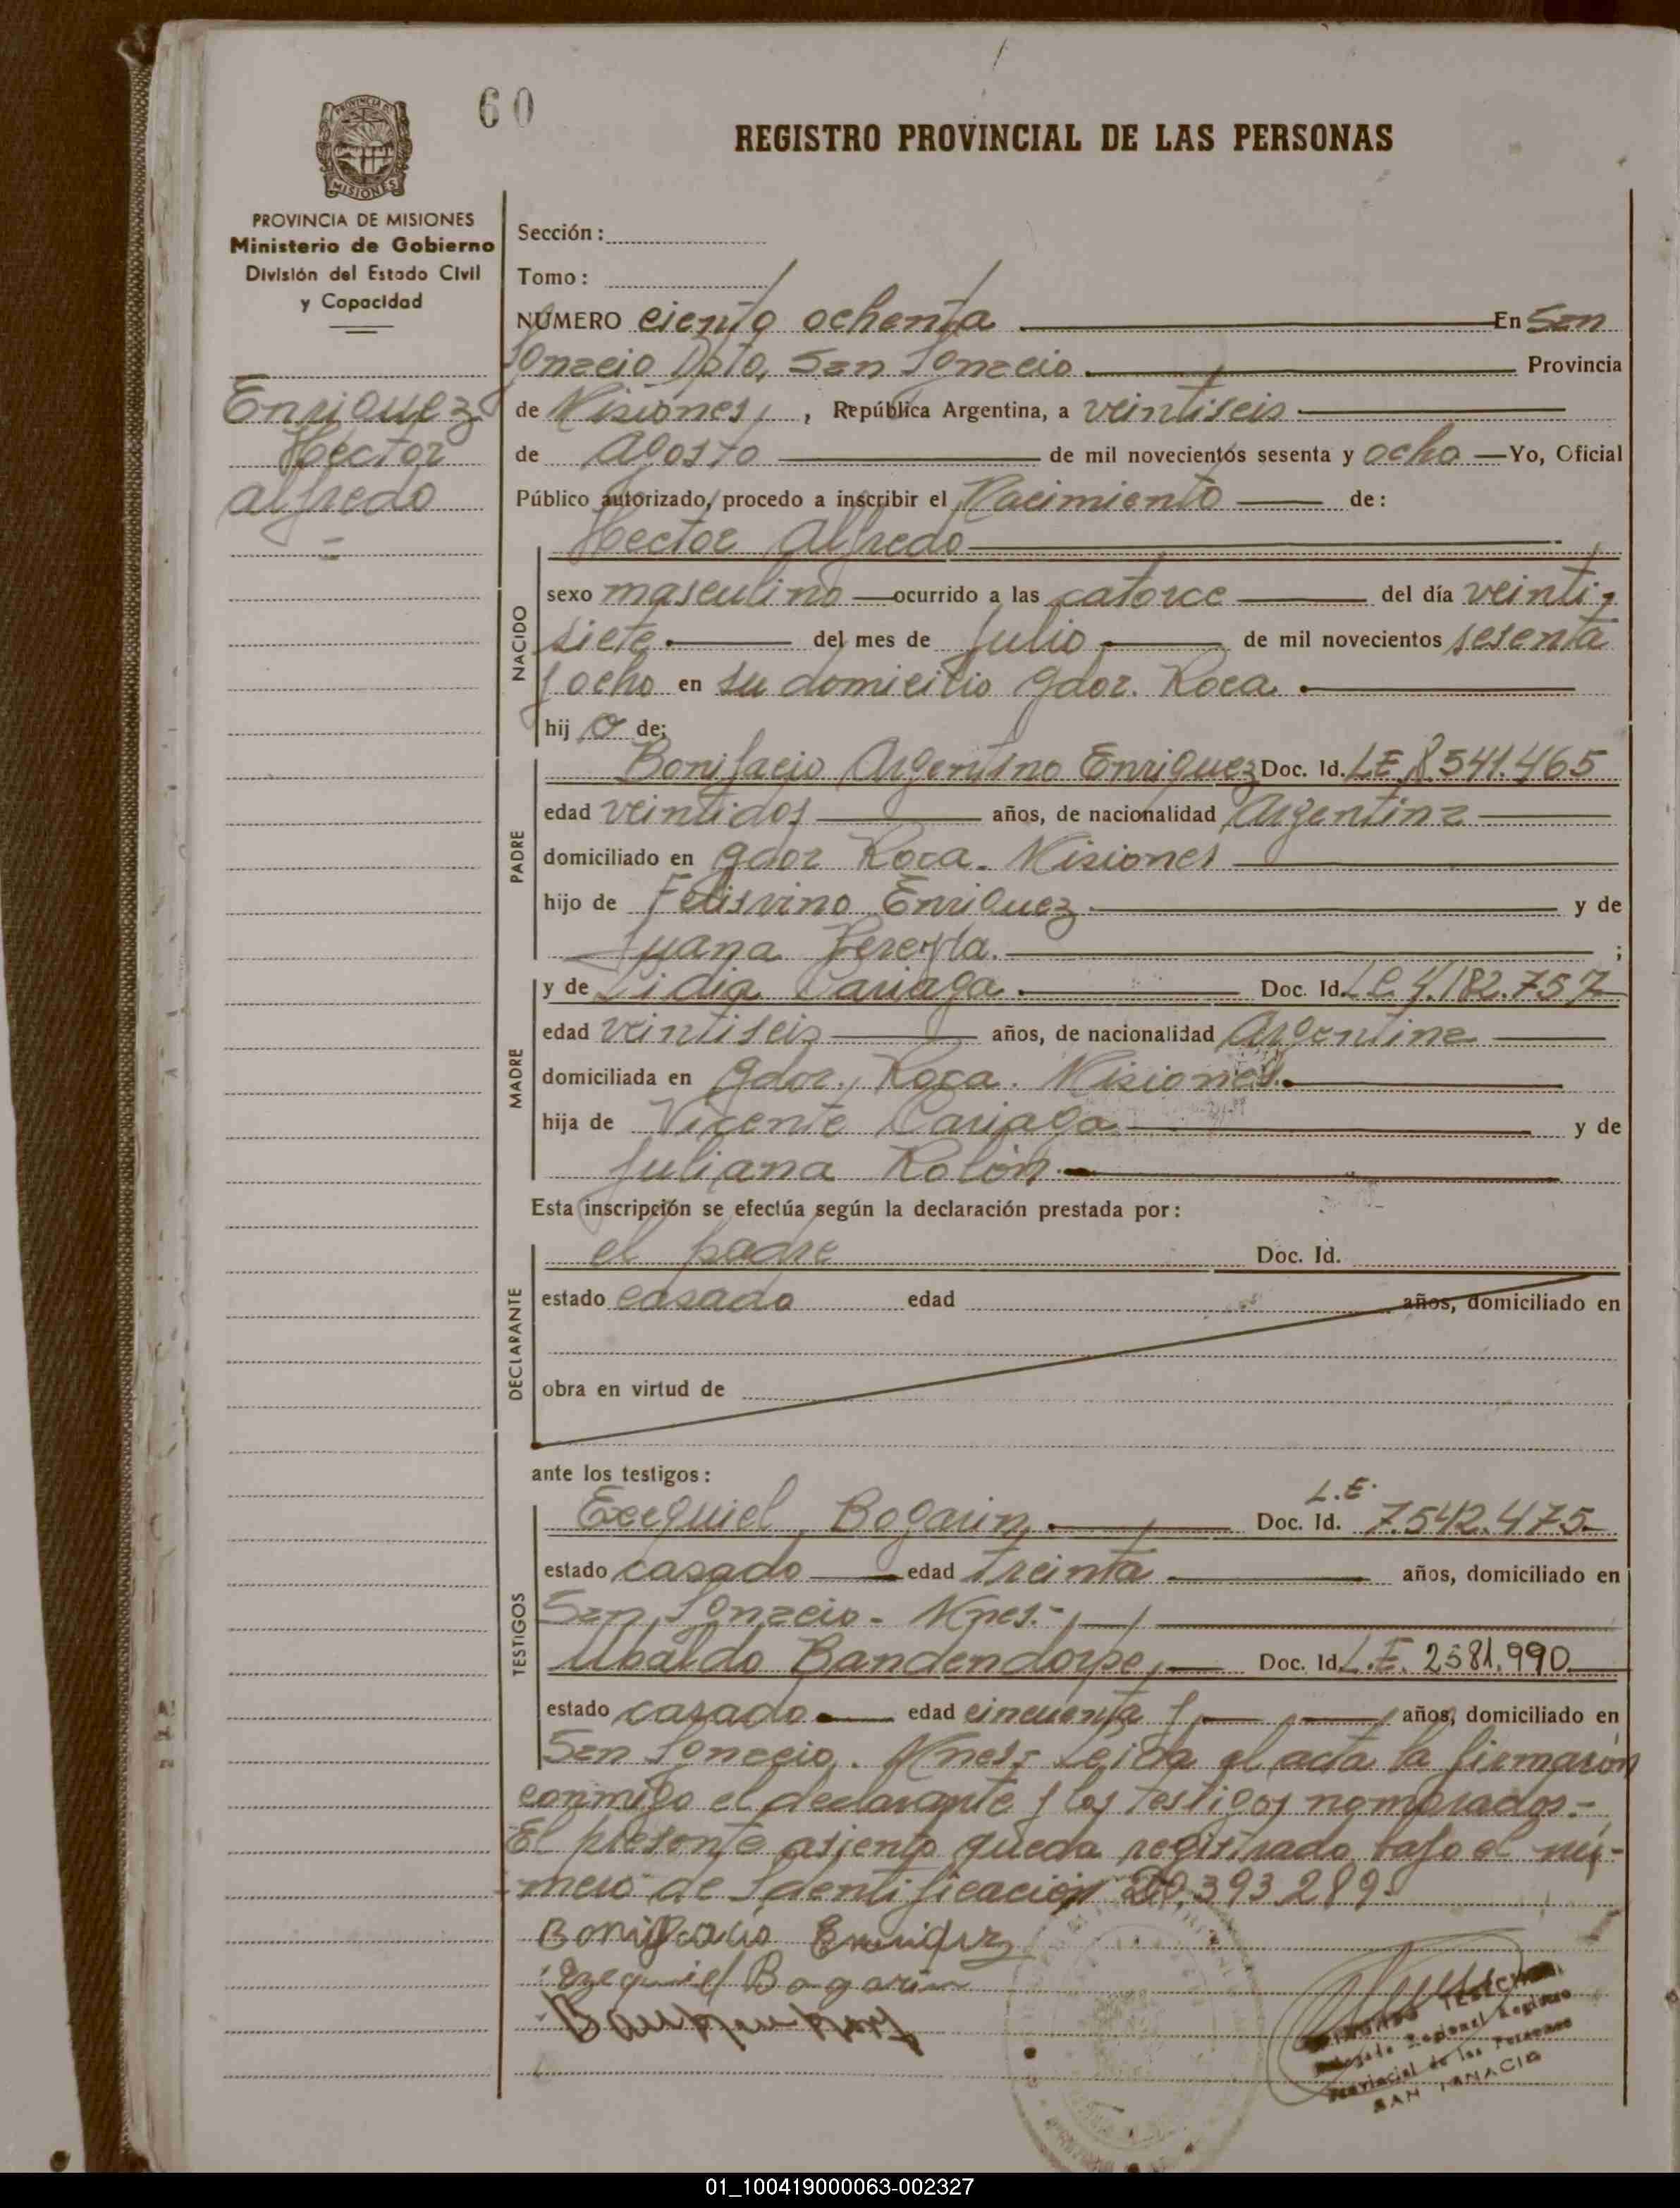 60
REGISTRO PROVINCIAL DE LAS PERSONAS
PROVINCIA DE MISIONES
Ministerio de Gobierno
División del Estado Civil
y Capacidad
Enriquez
Hector
Alfredo
Sección:
Tomo:
NÚMERO ciento ochenta En San
Ignacio Dpto. San Ignacio Provincia
de Misiones, República Argentina, a veintiseis
de Agosto de mil novecientos sesenta y ocho Yo, Oficial
Público autorizado, procedo a inscribir el Nacimiento de:
Hector Alfredo
NACIDO
sexo masculino ocurrido a las catorce del día veinti-
siete del mes de Julio de mil novecientos sesenta
y ocho en su domicilio Gdor. Roca.
hijo de:
PADRE
Bonifacio Argentino Enriquez Doc. Id. LE 8.541.465
edad veintidos años, de nacionalidad Argentina
domiciliado en Gdor Roca. Misiones
hijo de Felisvino Enriquez y de
Juana Pereyla. ;
MADRE
y de Lidia Cariaga. Doc. Id. LC 4.182.757
edad veintiseis años, de nacionalidad Argentina
domiciliada en Gdor. Roca. Misiones.
hija de Vicente Cariaga y de
Juliana Rolón.
Esta inscripción se efectúa según la declaración prestada por:
DECLARANTE
el padre Doc. Id.
estado casado edad años, domiciliado en
obra en virtud de
ante los testigos:
TESTIGOS
Exequiel Bogarin, Doc. Id. L.E. 7.542.475
estado casado edad treinta años, domiciliado en
San Ignacio - Mnes.-
Ubaldo Bandendorpe, Doc. Id. L.E. 2581.990
estado casado edad cincuenta y años, domiciliado en
San Ignacio. Mnes. Leida el acta la firmaron
conmigo el declarante y los testigos nombrados.-
El presente asiento queda registrado bajo el nú-
mero de Identificación 20.393.289.
Bonifacio Enriquez
Ezequiel Bogarin
Delegado Regional Registro
Provincial de las Personas
SAN IGNACIO
01_100419000063-002327